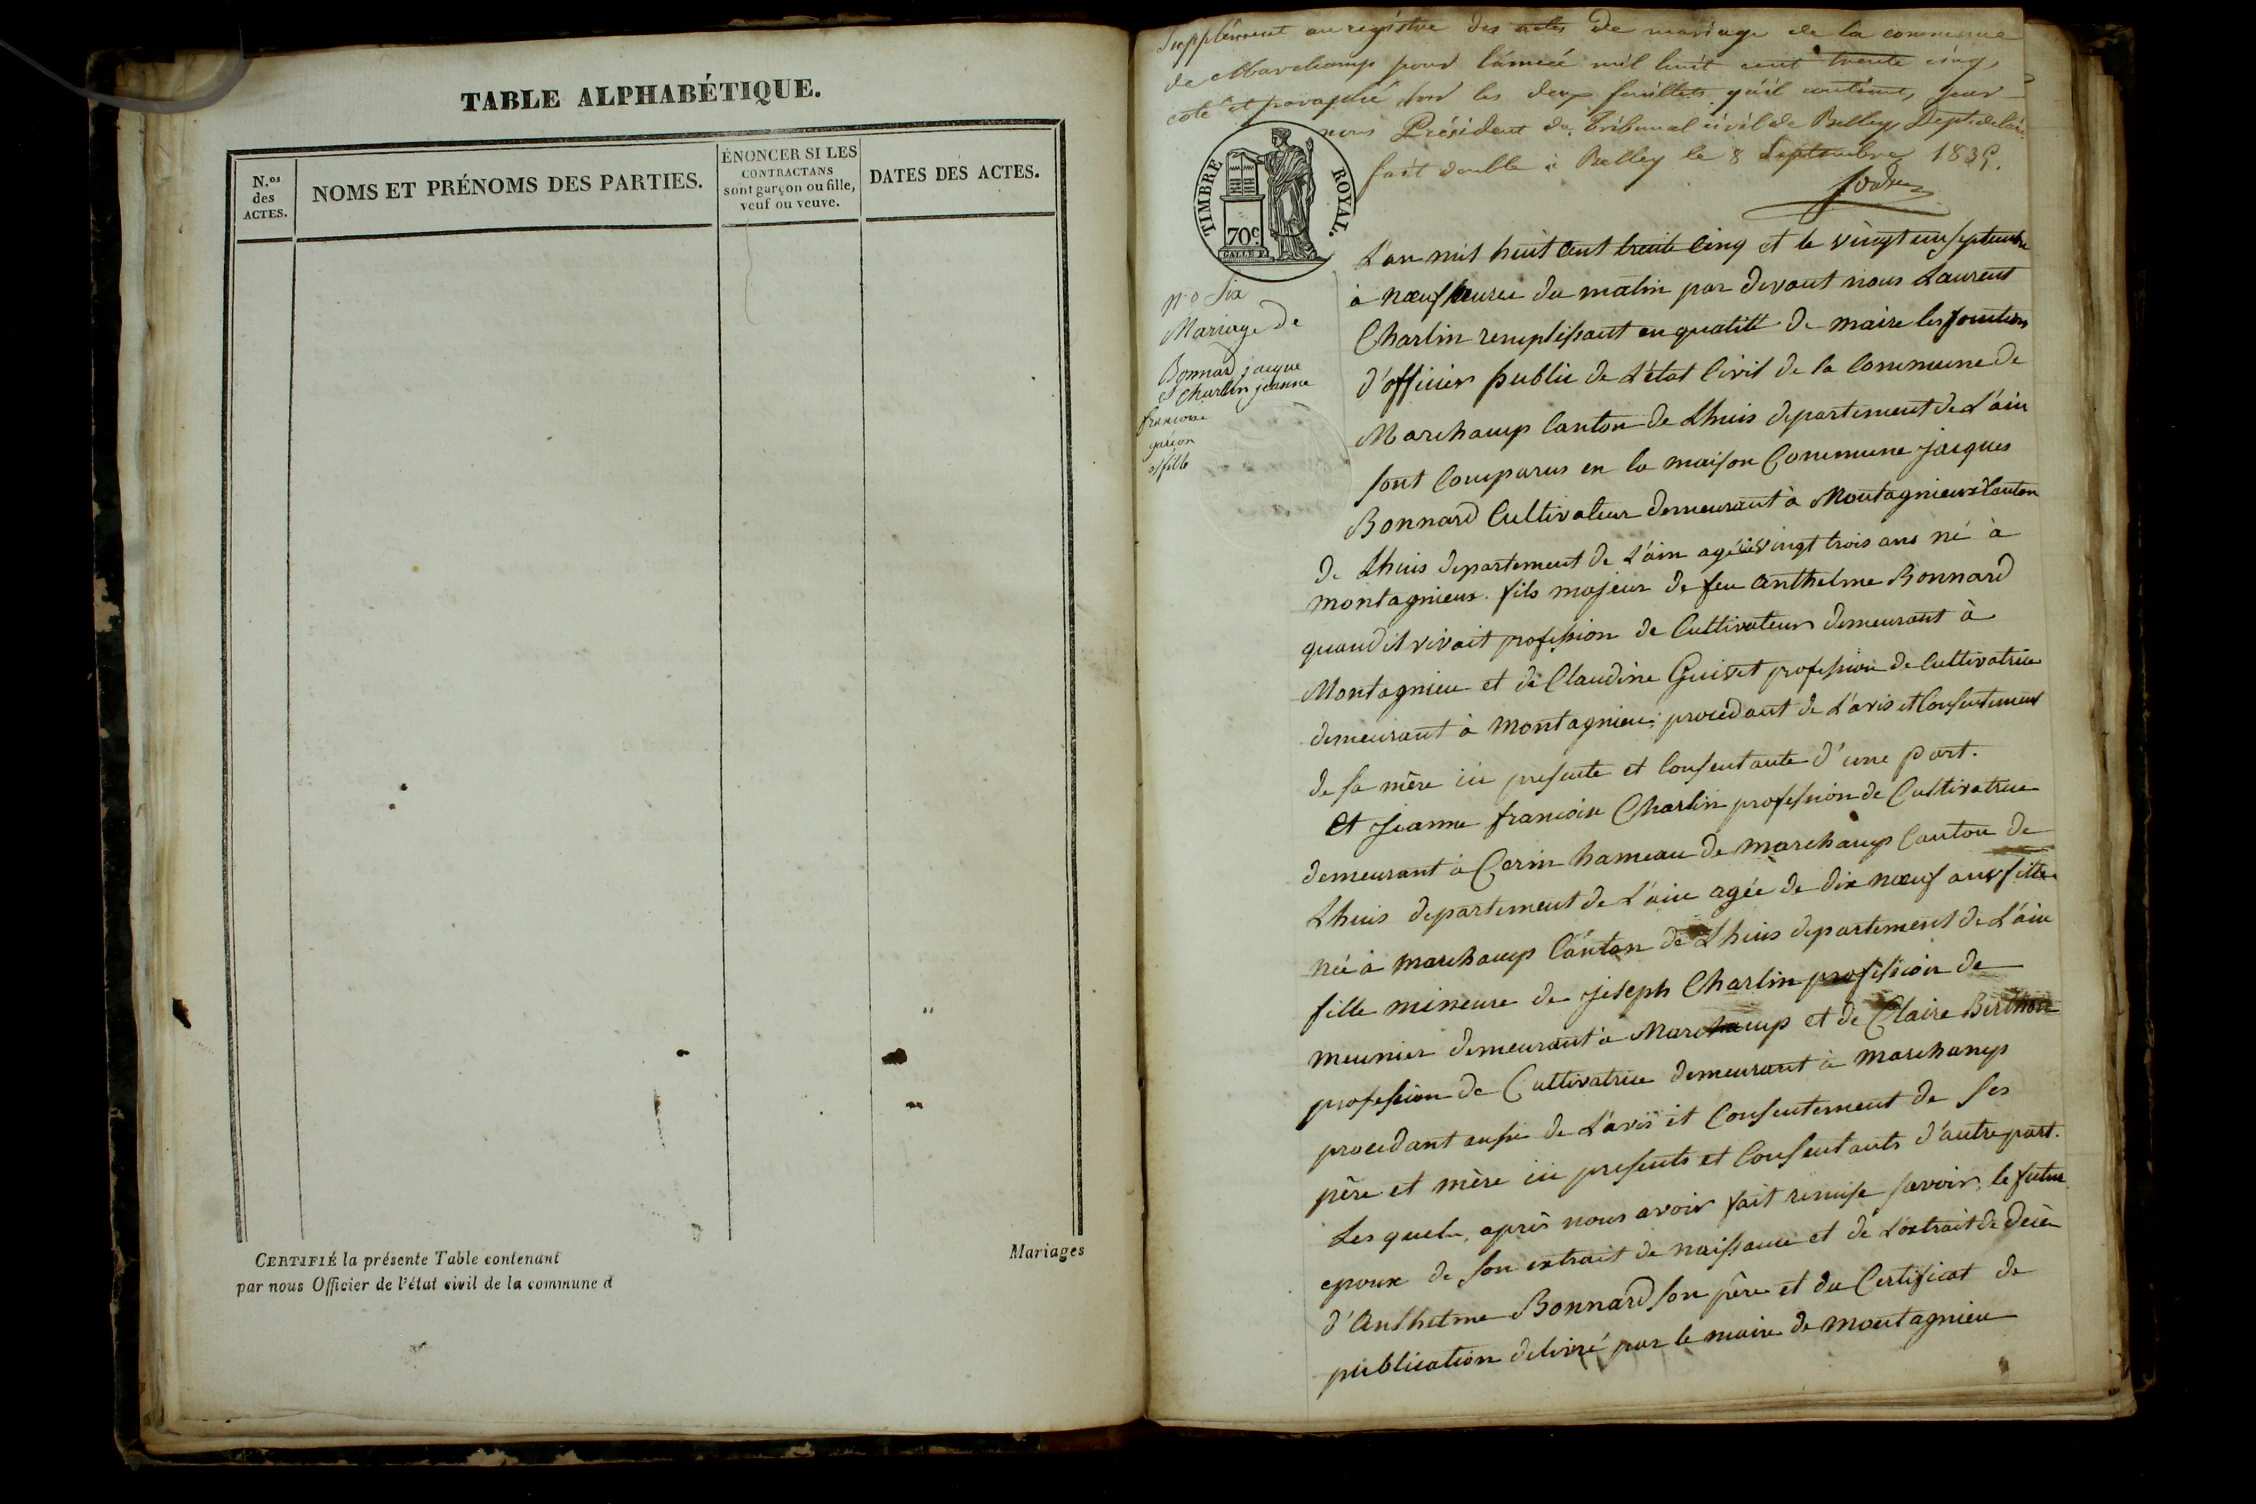 TABLE ALPHABÉTIQUE.
N.os des ACTES.
NOMS ET PRÉNOMS DES PARTIES.
ÉNONCER SI LES
CONTRACTANS
sont garçon ou fille,
veuf ou veuve.
DATES DES ACTES.
CERTIFIÉ la présente Table contenant
Mariages
par nous Officier de l'état civil de la commune d
Supplément au registre des actes de mariage de la commune
de Marchamp pour l'année mil huit cent trente cinq,
coté et paraphé sur les deux feuillets qu'il contient, par
nous Président du Tribunal civil de Belley Dept de l'ain
fait double à Belley le 8 Septembre 1835.
TIMBRE ROYAL.
70c
N° Six
Mariage de
Bonnard jacque
et Charlin jeanne
francoise
garcon
et fille
L'an mil huit cent trente cinq et le vingt un septembre
à nœuf heures du matin par devant nous Laurent
Charlin remplissant en qualité de maire les fonctions
d'officier public de L'état Civil de la Commune de
Marchamp Canton de Lhuis departement de L'ain
sont Comparus en la maison Commune jacques
Bonnard Cultivateur demeurant à Montagnieux Canton
de Lhuis departement de L'ain agé de vingt trois ans né à
montagnieux. fils majeur de feu anthelme Bonnard
quand il vivait profession de Cultivateur demeurant à
Montagnieu et de Claudine Guiset profession de Cultivatrice
demeurant à Montagnieu; procedant de L'avis et Consentement
de sa mère ici presente et Consentante d'une part.
et jeanne francoise Charlin profession de Cultivatrice
demeurant à Cerin hameau de marchamp Canton de
Lhuis departement de L'ain agée de dix nœuf ans fille
née à marchamp Canton de Lhuis departement de L'ain
fille mineure de joseph Charlin profession de
meunier demeurant à Marchamp et de Claire Berthon
profession de Cultivatrice demeurant à marchamp
procedant aussi de L'avis et Consentement de ses
père et mère ici presents et Consentants d'autre part.
Lesquels, après nous avoir fait remise savoir, le futur
epoux de son extrait de naissance et de L'extrait de decès
d'Anthelme Bonnard son père et du Certificat de
publication delivré par le maire de montagnieu